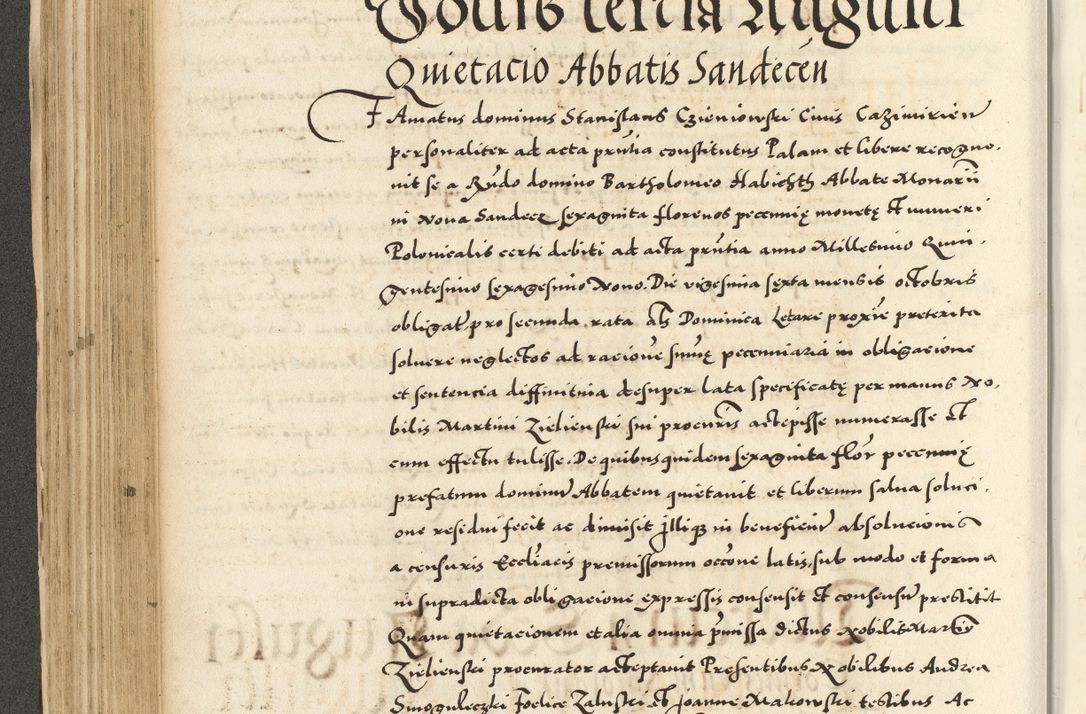 tercia Augusti
Quietacio Abbatis Sandecen
Famatus dominus Stanislaus Czieniowski Civis Cazimirien
personaliter ad acta prñtia constitutus Palam et libere recogno,
vit se a Rñdo domino Bartholomeo Habichth Abbate Monarii
in Nova Sandecz sexaginta florenos pecunnię monetę et numeri
Polonicalis certi debiti ad acta prñtia anno Millesimo Quin,
gentesimo sexagesimo Nono. Die vigesima sexta mensis octobris
obligat pro secunda rata ab Dominica Letare proxie preterita
solvere neglectos ad racione summę pecunniaria in obligacione
et sentencia diffinitiva desuper lata specificatę per manus No,
bilis Martini Zielienski sui procuris acceptisse numerasse et
cum effectu tulisse. De quibus quidem sexaginta flor pecunnię
prefatum dominum Abbatem quietavit et liberum salva soluci,
one residui fecit ac dimisit illiq3 in beneficium absolucionis
a censuris Eccliacis premissorum occone latis, sub modo et forma
in supradicta obligacione expressis consensit et consensum prestitit
Quam quietacionem et alia omnia pmissa dictus Nobilis Martin
Zielienski procurator acceptavit Presentibus Nobilibus Andrea
Smoguleczki Foelice Zaluski et Joanne Makowski testibus Ac